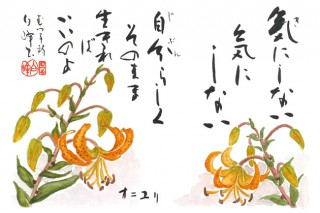 気にしない
気に
しない
自分らしく
そのまま
生きれ
ば
いいのよ
オニユリ